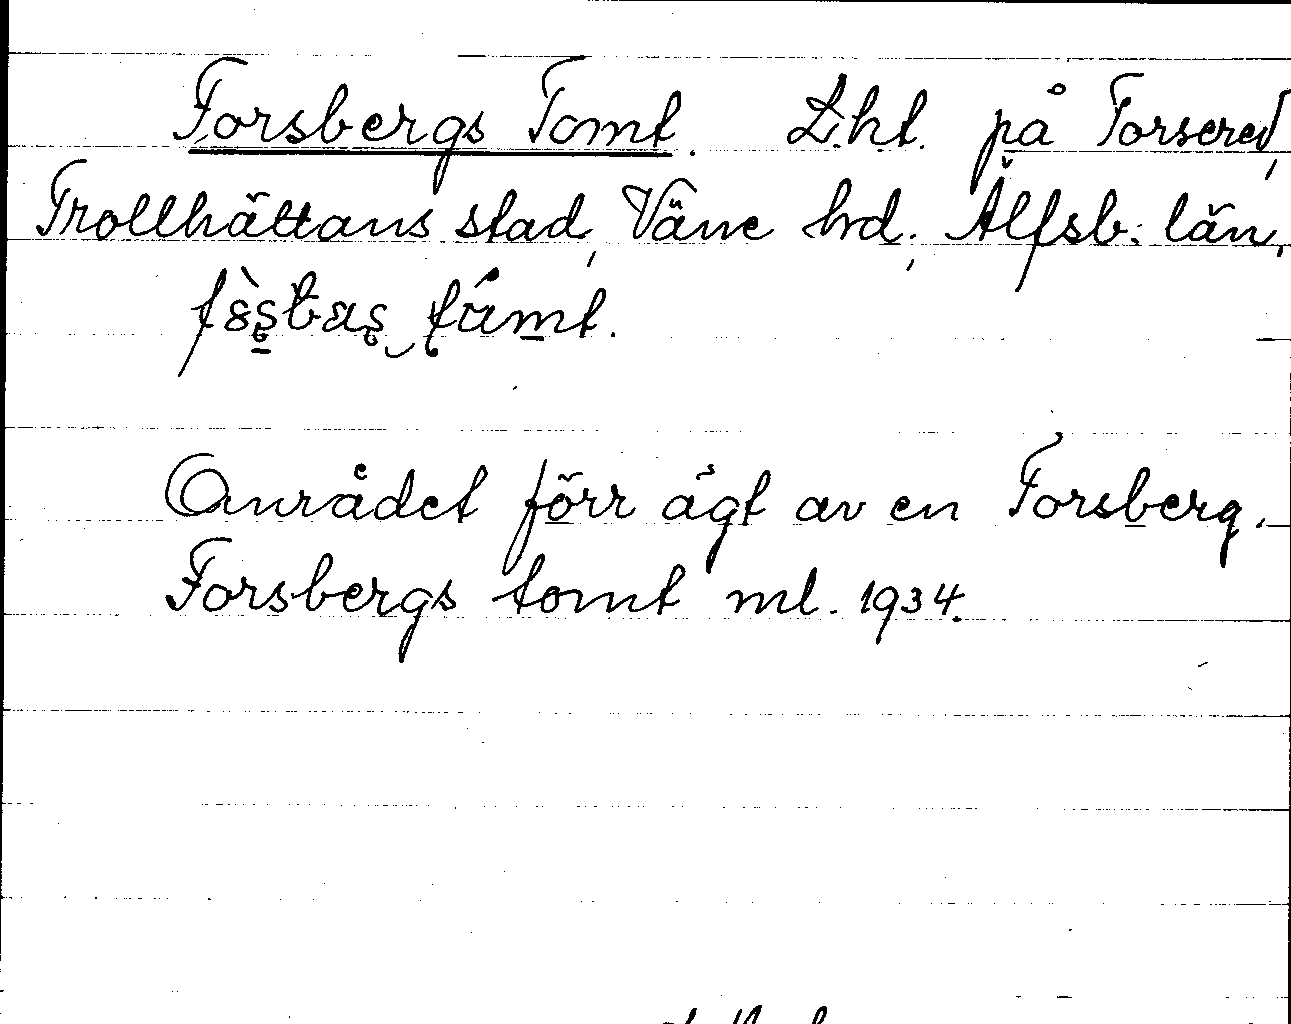 Forsbergs Tomt. Lht. på Forsered,
Trollhättans stad, Väne hd, Älfsb. län.
Området förr ägt av en Forsberg.
Forsbergs tomt ml. 1934.